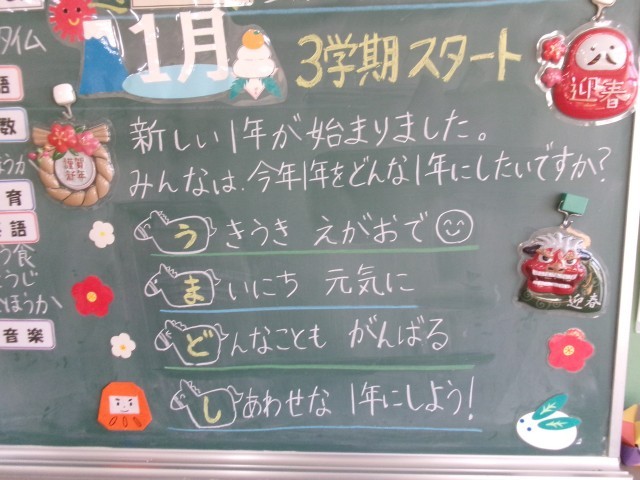 1月
3学期スタート
迎春
謹賀
新年
新しい1年が始まりました。
みんなは、今年1年をどんな1年にしたいですか?
うきうき えがおで
まいにち 元気に
どんなことも がんばる
しあわせな 1年にしよう!
迎春
タイム
語
数
ほうか
育
語
う食
うじ
ほうか
音楽